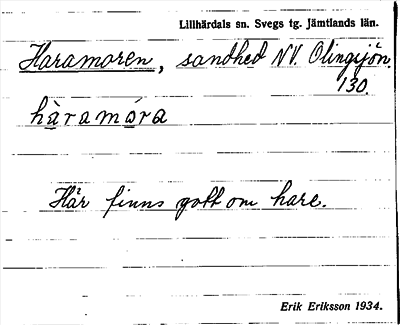 Lillhärdals sn. Svegs tg. Jämtlands län.
Haramoren, sandhed NV. Olingsjön.
130.
hàramóra
Här finns gott om hare.
Erik Eriksson 1934.